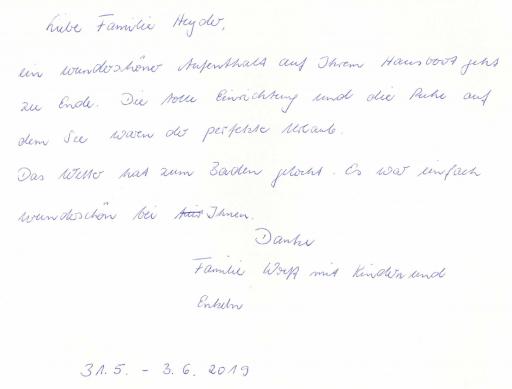 Liebe Familie Heyder,
ein wunderschöner Aufenthalt auf Ihrem Hausboot geht
zu Ende. Die tolle Einrichtung und die Ruhe auf
dem See waren der perfekte Urlaub.
Das Wetter hat zum Baden gelockt. Es war einfach
wunderschön bei Ihnen.
Danke
Familie mit Kindern und
Enkeln
31.5. - 3.6. 2019